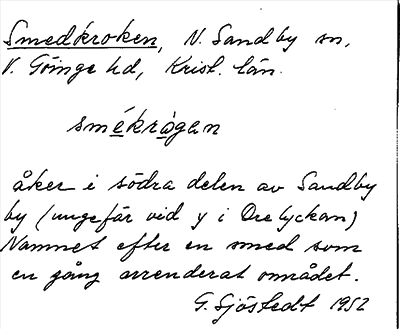 Smedkroken, N. Sandby sn,
V. Göinge hd, Krist. län.
smékrågan
åker i södra delen av Sandby
by (ungefär vid y i Orelyckan)
Namnet efter en smed som
en gång arrenderat området.
G. Sjöstedt 1952